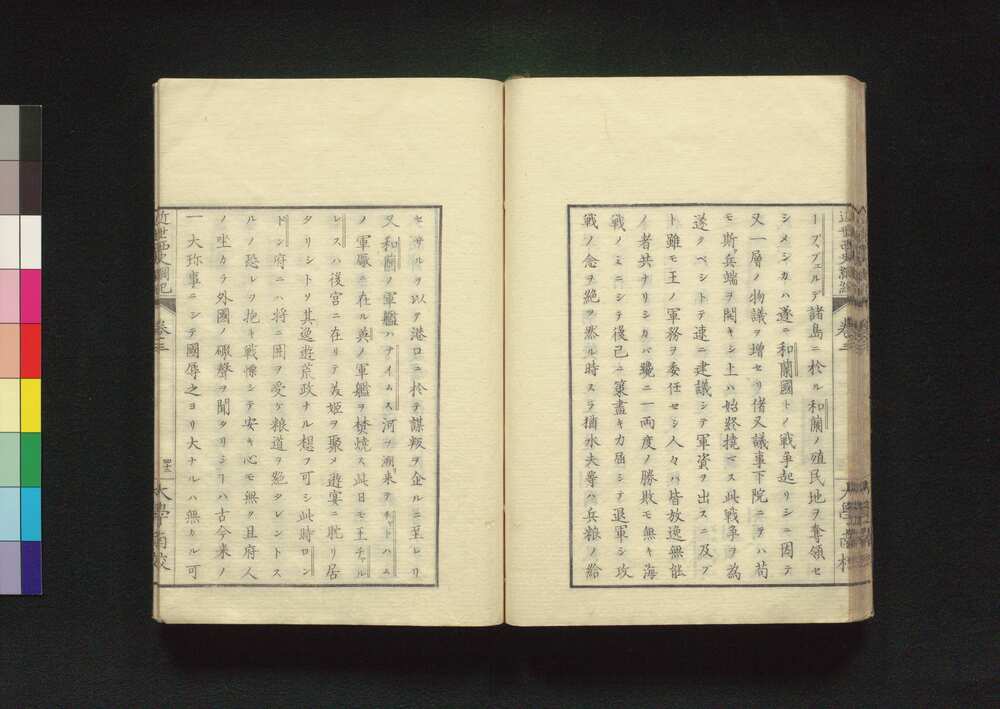 ーズヴェルデ諸島ニ於ル和蘭ノ殖民地ヲ奪領セ
シメシカハ遂ニ和蘭國トノ戦争起リシニ因テ
又一層ノ物議ヲ増セリ偖又議事下院ニヲハ苟
モ斯ク兵端ヲ開キシ上ハ始終撓マス此戦争ヲ為
遂クベシトテ速ニ建議シテ軍資ヲ出スニ及ブ
ト雖モ王ノ軍務ヲ委任セシ人々ハ皆放逸無能
ノ者共ナリシカバ纔ニ一両度ノ勝敗モ無キ海
戦ノミニシテ後已ニ策盡キカ屈シテ退軍シ攻
戦ノ念ヲ絶ツ然ル時スラ猶水夫等ハ兵粮ノ給
セサルヲ以テ港口ニ於テ謀叛ヲ企ルニ至レリ
又和蘭ノ軍艦ハテイムス河ヲ溯リ来テチャトハム
ノ軍廠ニ在ル英ノ軍艦ヲ焚焼ス此日モ王チャル
レスハ後宮ニ在リテ美姫ヲ聚メ遊宴ニ耽リ居
タリシトソ其逸遊荒政ナル想フ可シ此時ロン
ドン府ニハ将ニ囲ヲ受ケ粮道ヲ絶タレントス
ルノ恐レヲ抱キ戦慄シテ安キ心モ無ク且府人
ノ坐カラ外國ノ礮聲ヲ聞タリシコハ古今未ノ
一大珎事ニシテ國辱之ヨリ大ナルハ無カル可
近世西史綱紀
卷三
大學南校